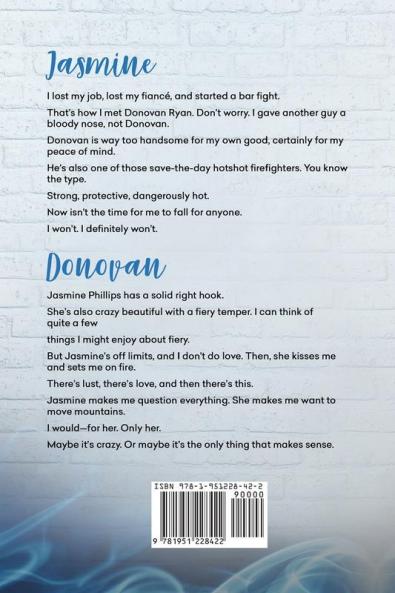 Jasmine
I lost my job, lost my fiancé, and started a bar fight.
That's how I met Donovan Ryan. Don't worry. I gave another guy a
bloody nose, not Donovan.
Donovan is way too handsome for my own good, certainly for my
peace of mind.
He's also one of those save-the-day hotshot firefighters. You know
the type.
Strong, protective, dangerously hot.
Now isn't the time for me to fall for anyone.
I won't. I definitely won't.
Donovan
Jasmine Phillips has a solid right hook.
She's also crazy beautiful with a fiery temper. I can think of
quite a few
things I might enjoy about fiery.
But Jasmine's off limits, and I don't do love. Then, she kisses me
and sets me on fire.
There's lust, there's love, and then there's this.
Jasmine makes me question everything. She makes me want to
move mountains.
I would—for her. Only her.
Maybe it's crazy. Or maybe it's the only thing that makes sense.
ISBN 978-1-951228-42-2
90000
9 781951 228422